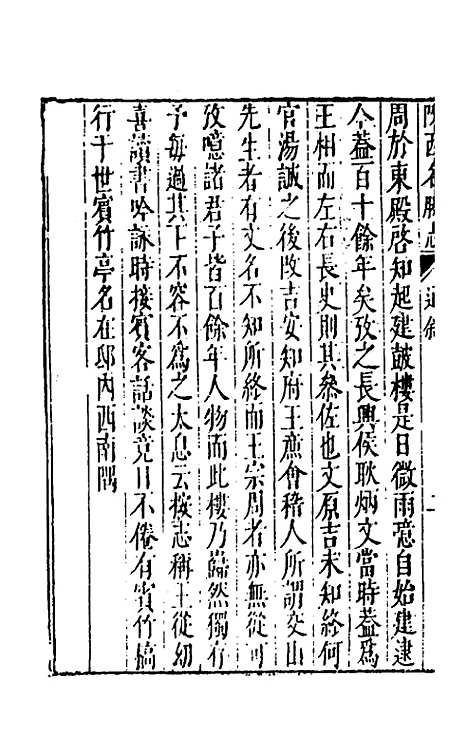 陝西名勝志 通叙 二
周於東殿啓知起建鼓樓是日微雨噫自始建逮
今葢百十餘年矣攷之長興侯耿炳文當時葢爲
王相而左右長史則其叅佐也文原吉未知終何
官湯誠之後改吉安知府王㢘會稽人所謂交山
先生者有文名不知所終而王宗周者亦無從可
攷噫諸君子皆百餘年人物而此樓乃巋然獨存
予每過其下不容不爲之太息云按志稱王從幼
喜讀書吟詠時接賓客話談竟日不倦有賓竹稿
行于世賓竹亭名在邸内西南隅